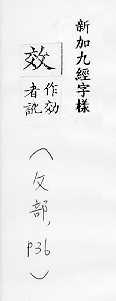 新加九經字樣
效
作効
者訛
(攵部,
P36)